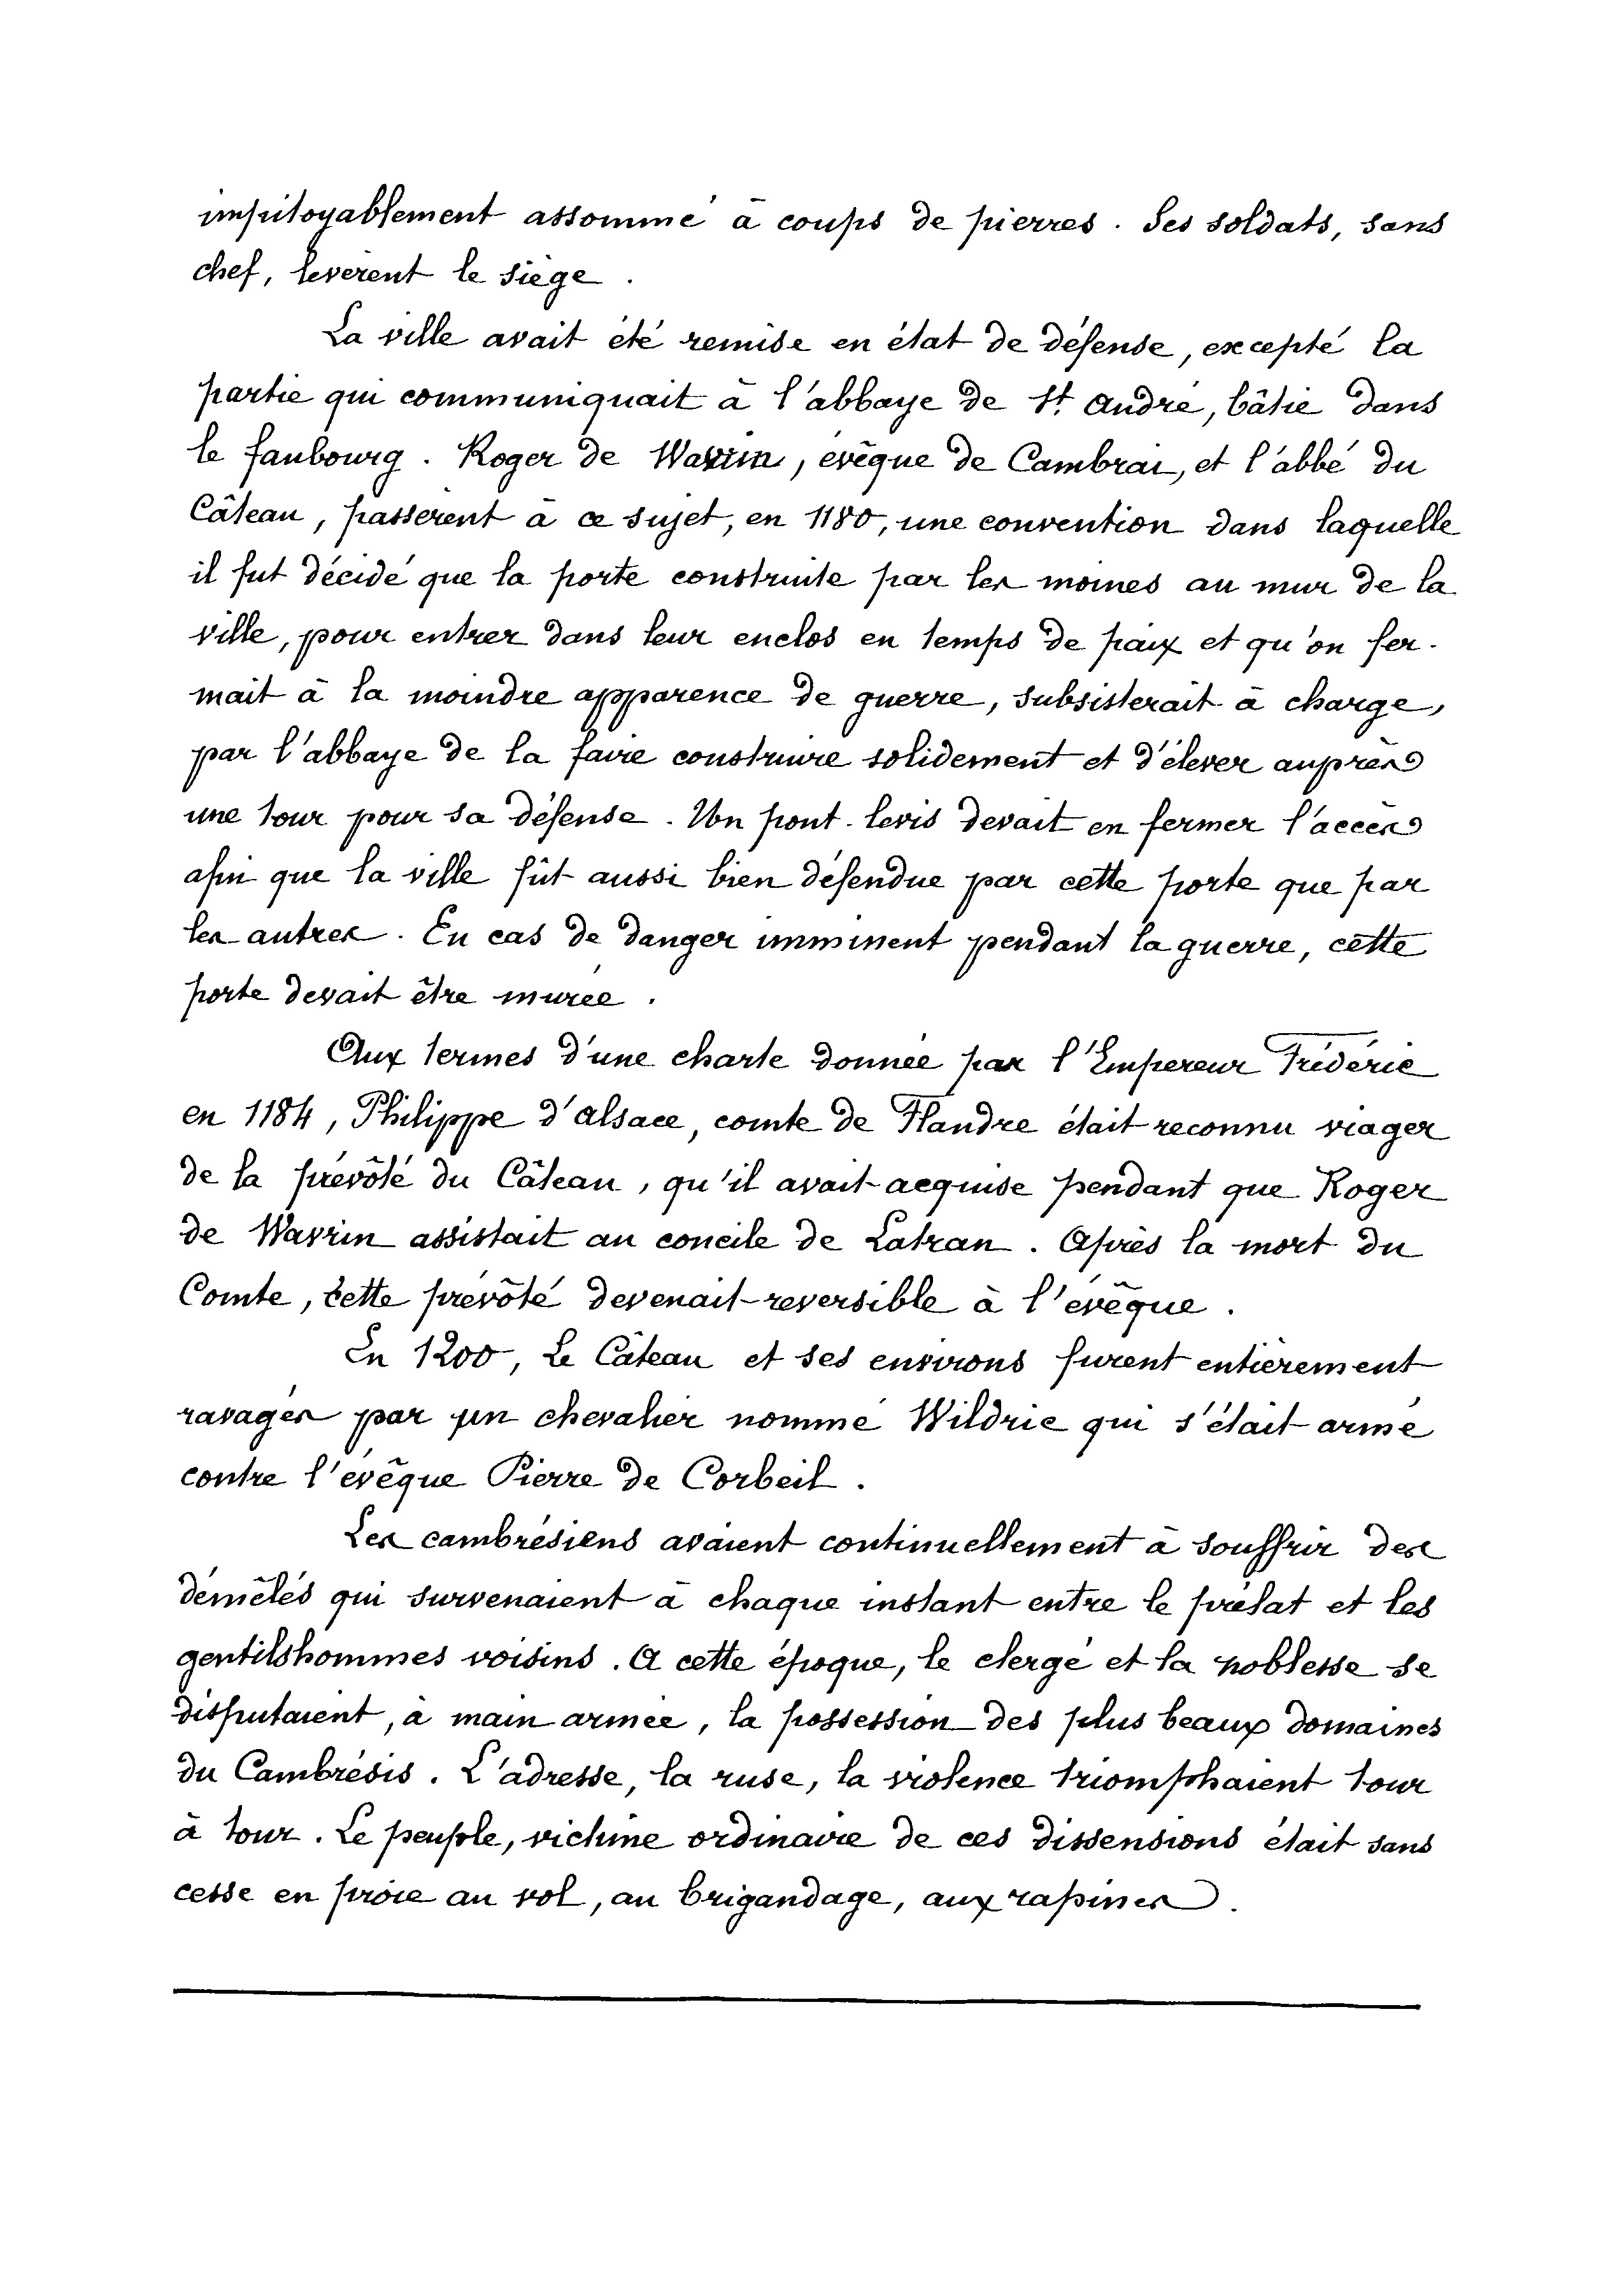 impitoyablement assommé à coups de pierres. Ses soldats, sans
chef, levèrent le siège.
La ville avait été remise en état de défense, excepté la
partie qui communiquait à l'abbaye de St. André, bâtie dans
le faubourg. Roger de Wavrin, évêque de Cambrai, et l'abbé du
Câteau, passèrent à ce sujet, en 1180, une convention dans laquelle
il fut décidé que la porte construite par les moines au mur de la
ville, pour entrer dans leur enclos en temps de paix et qu'on fer-
mait à la moindre apparence de guerre, subsisterait à charge,
par l'abbaye de la faire construire solidement et d'élever auprès
une tour pour sa défense. Un pont-levis devait en fermer l'accès
afin que la ville fût aussi bien défendue par cette porte que par
les autres. En cas de danger imminent pendant la guerre, cette
porte devait être murée.
Aux termes d'une charte donnée par l'Empereur Frédéric
en 1184, Philippe d'Alsace, comte de Flandre était reconnu viager
de la prévôté du Câteau, qu'il avait acquise pendant que Roger
de Wavrin assistait au concile de Latran. Après la mort du
Comte, cette prévôté devenait reversible à l'évêque.
En 1200, Le Câteau et ses environs furent entièrement
ravagés par un chevalier nommé Wildric qui s'était armé
contre l'évêque Pierre de Corbeil.
Les cambrésiens avaient continuellement à souffrir des
démêlés qui survenaient à chaque instant entre le prélat et les
gentilshommes voisins. A cette époque, le clergé et la noblesse se
disputaient, à main armée, la possession des plus beaux domaines
du Cambrésis. L'adresse, la ruse, la violence triomphaient tour
à tour. Le peuple, victime ordinaire de ces dissensions était sans
cesse en proie au vol, au brigandage, aux rapines.